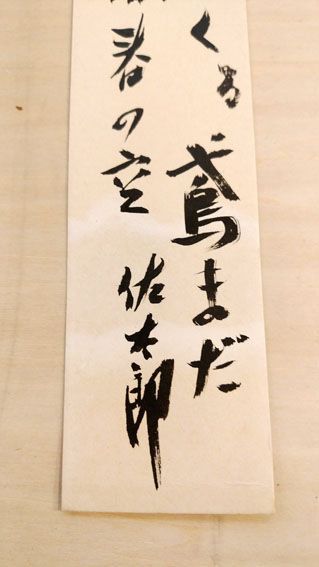 くる鳶まだ
春の空
佐太郎